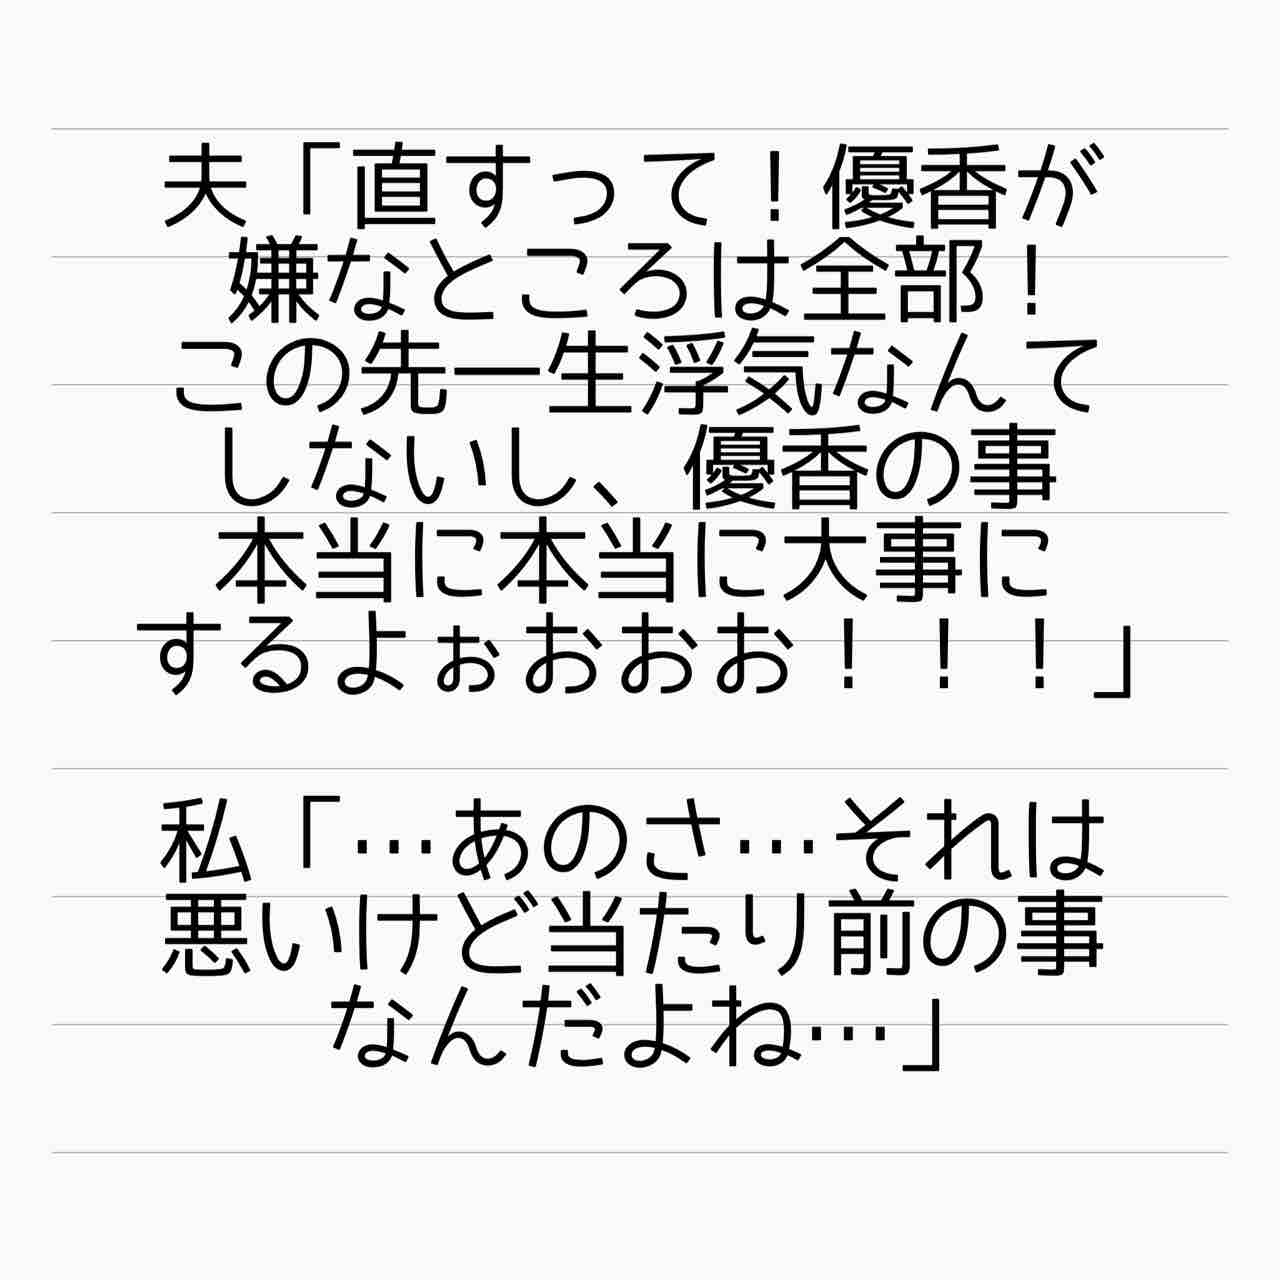 夫「直すって！優香が
嫌なところは全部！
この先一生浮気なんて
しないし、優香の事
本当に本当に大事に
するよぉおおお！！！」
私「…あのさ…それは
悪いけど当たり前の事
なんだよね…」